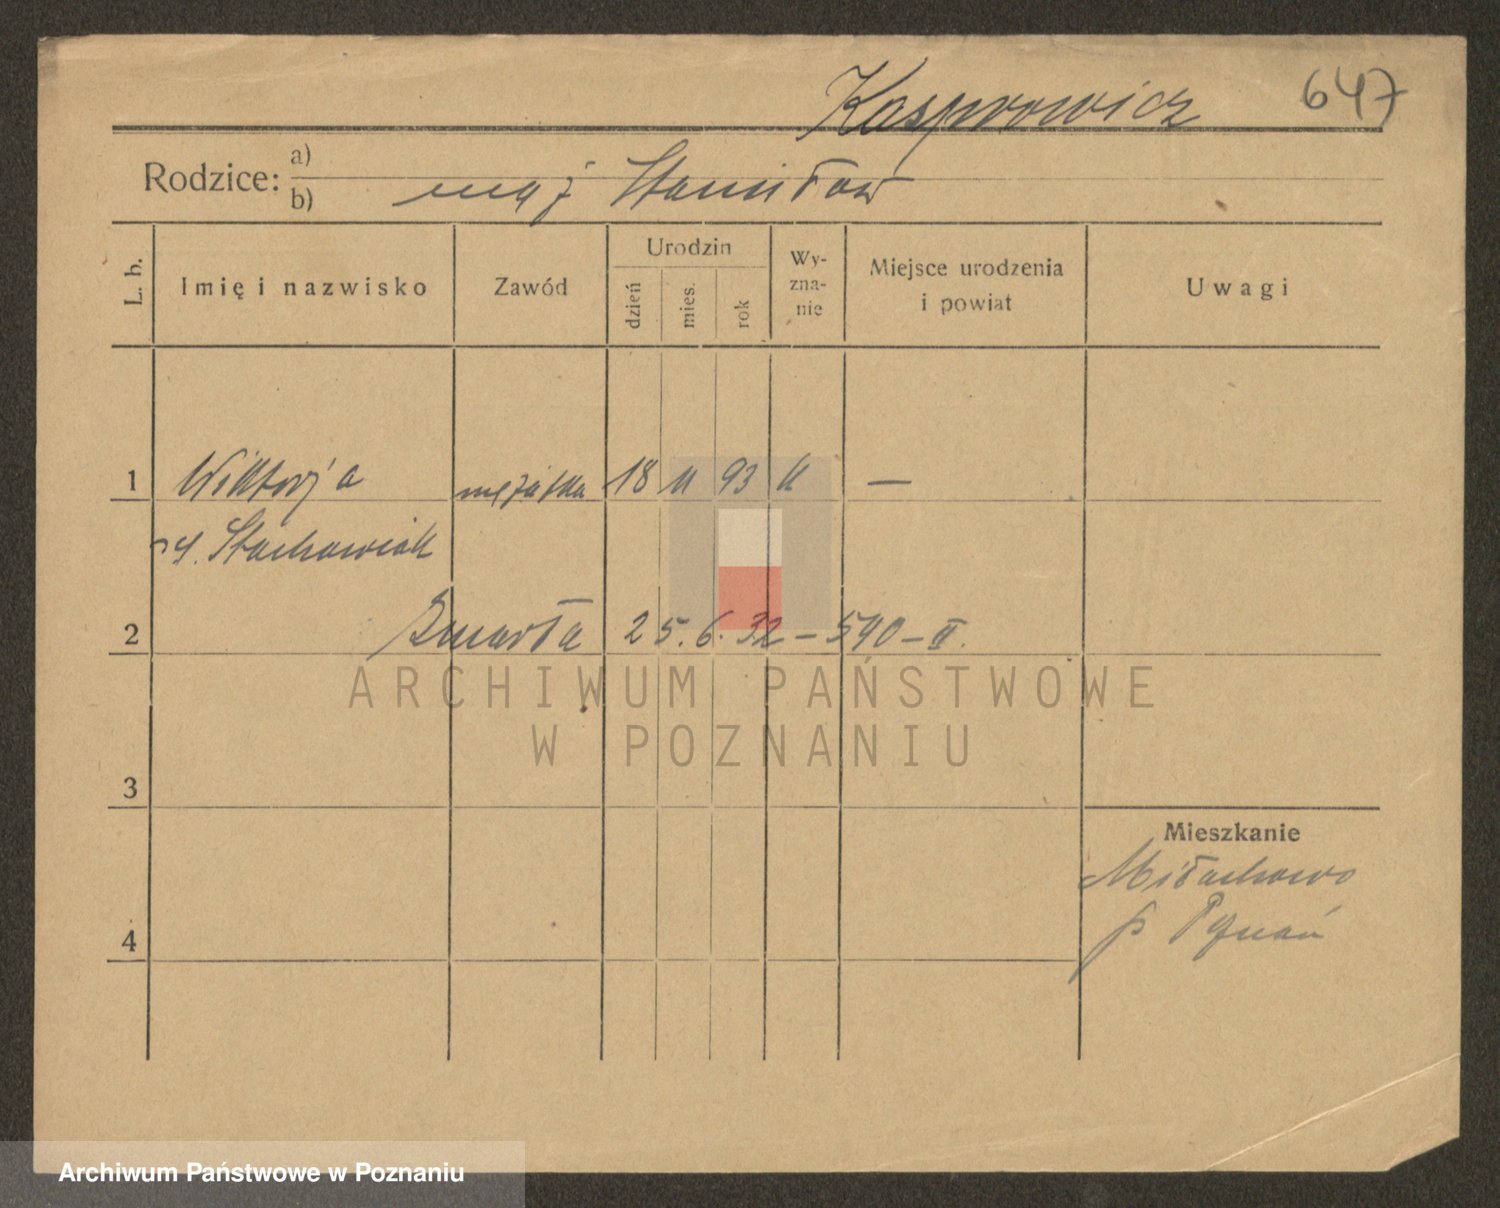 Kasprowicz 647
Rodzice: a)
b) mąż Stanisław
L. b. Imię i nazwisko Zawód Urodzin dzień mies. rok Wy-zna-nie Miejsce urodzenia i powiat Uwagi
1 Wiktorja mężatka 18 11 93 k —
Stachowiak
2 Zmarła 25.6.32 – 590 – II.
ARCHIWUM PAŃSTWOWE
W POZNANIU
3
Mieszkanie
p Poznań
4
Archiwum Państwowe w Poznaniu